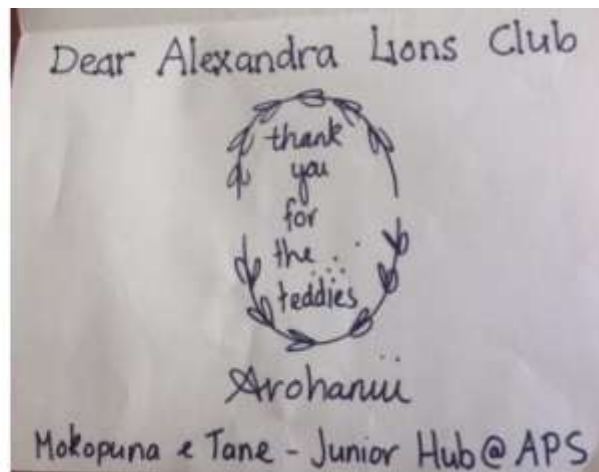 Dear Alexandra Lions Club
thank
you
for
the...
teddies
Arohanui
Mokopuna e Tane - Junior Hub @ APS